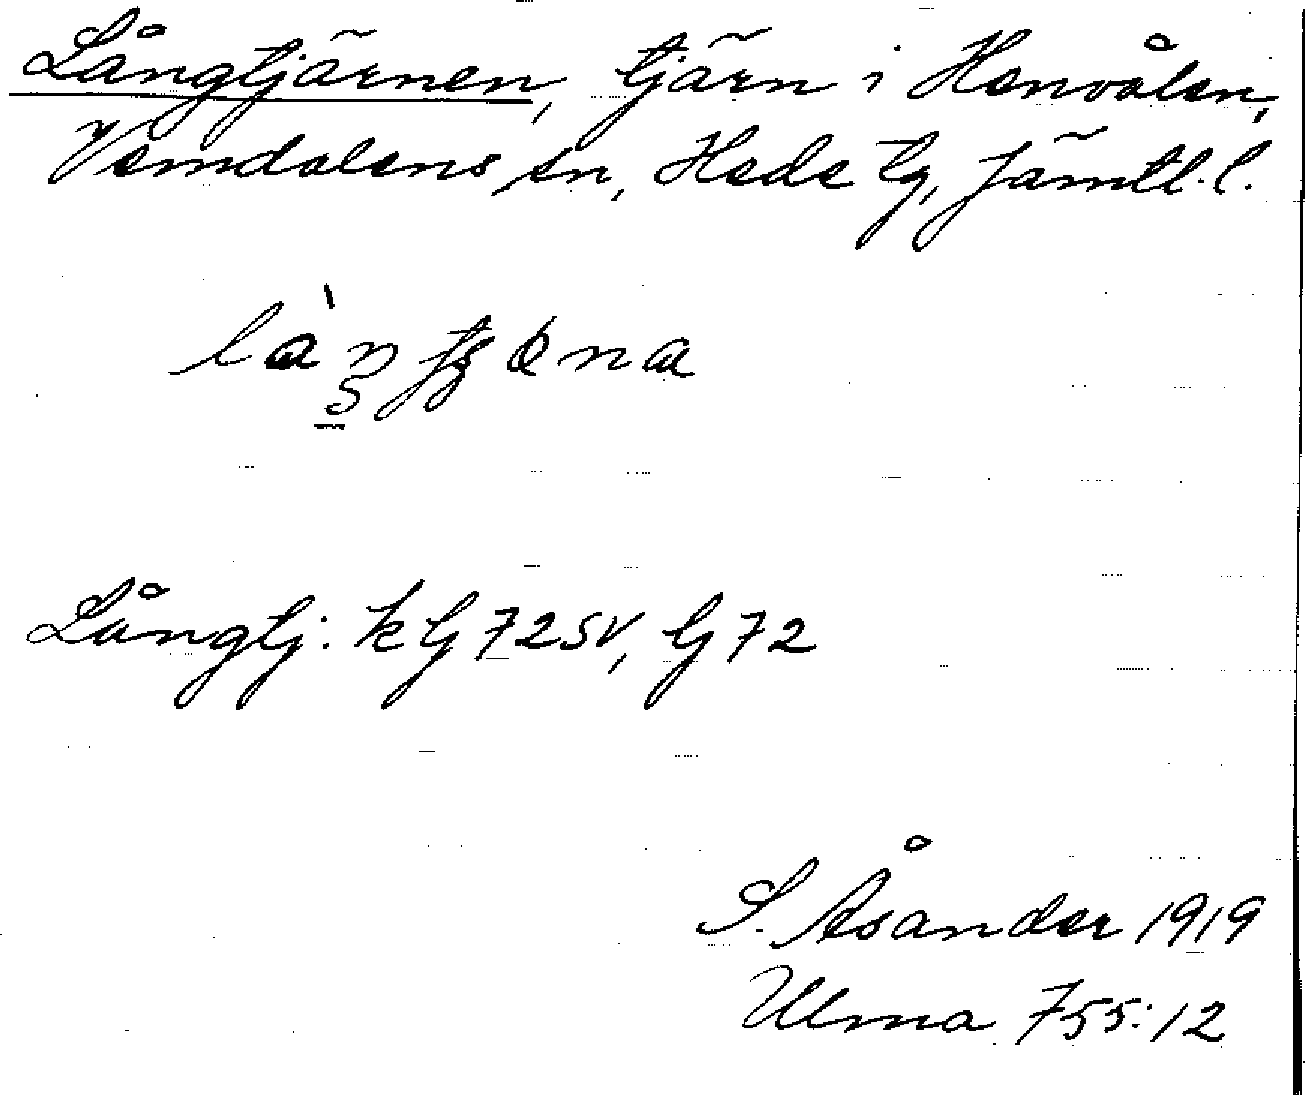 Långtjärnen, tjärn i Henvålen,
Vemdalens sn, Hede tg, Jämtl. l.
Långtj: k tj 72 SV, tj 72
S. Åsander 1919
Ulma 755:12